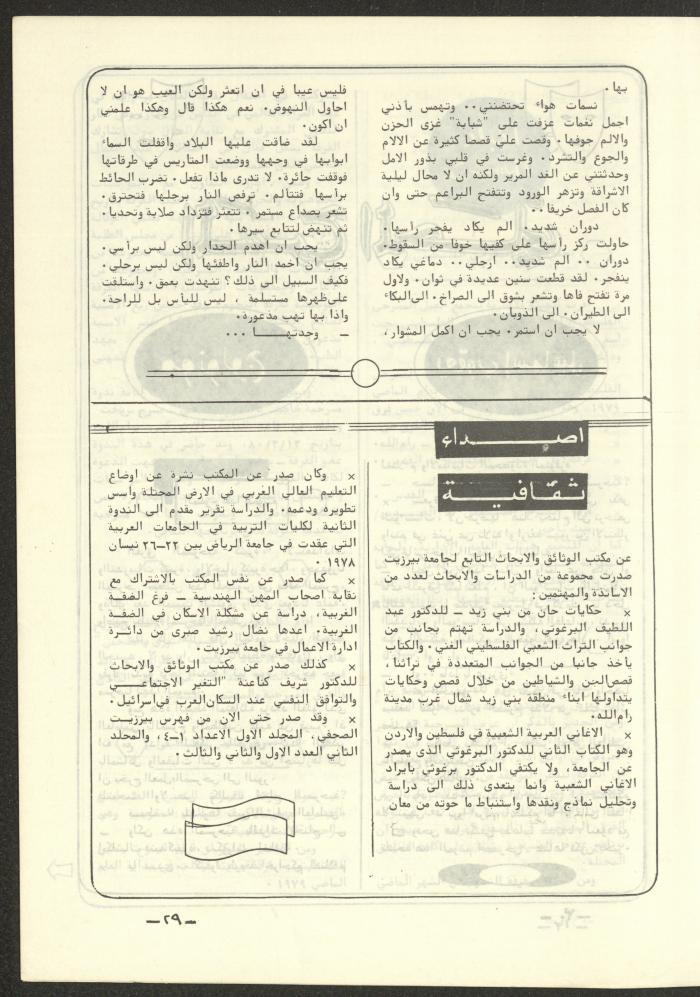 بها.
نسمات هواء تحتضنني.. وتهمس باذني
اجمل نغمات عزفت على "شبابة" غزى الحزن
والالم جوفها. وقصت عليّ قصصا كثيرة عن الالام
والجوع والتشرد. وغرست في قلبي بذور الامل
وحدثتني عن الغد المرير ولكنه ان لا محال ليلية
الاشراقة وتزهر الورود وتتفتح البراعم حتى وان
كان الفصل خريفا..
دوران شديد. الم يكاد يفجر رأسها.
حاولت ركز رأسها على كفيها خوفا من السقوط.
دوران .. الم شديد.. ارحلي.. دماغي يكاد
ينفجر. لقد قطعت سنين عديدة في ثوان. ولاول
مرة تفتح فاها وتشعر بشوق الى الصراخ. الى البكاء
الى الطيران. الى الذوبان.
لا يجب ان استمر. يجب ان اكمل المشوار،
فليس عيبا في ان اتعثر ولكن العيب هو ان لا
احاول النهوض. نعم هكذا قال وهكذا علمني
ان اكون.
لقد ضاقت عليها البلاد واقفلت السماء
ابوابها في وجهها ووضعت المتاريس في طرقاتها
فوقفت حائرة. لا تدرى ماذا تفعل. تضرب الحائط
برأسها فتتألم. ترفص النار برجلها فتحترق.
تشعر بصداع مستمر. تتعثر فتزداد صلابة وتحديا.
ثم تنهض لتتابع سيرها.
يجب ان اهدم الجدار ولكن ليس برأسي.
يجب ان اخمد النار واطفئها ولكن ليس برجلي.
فكيف السبيل الى ذلك؟ تنهدت بعمق. واستلقت
على ظهرها مستسلمة ، ليس لليأس بل للراحة.
واذا بها تهب مذعورة.
ـ وجدتهـــا ...
اصـــداء
ثقـافيـــة
عن مكتب الوثائق والابحاث التابع لجامعة بيرزيت
صدرت مجموعة من الدراسات والابحاث لعدد من
الاساتذة والمهتمين:
× حكايات جان من بني زيد ـ للدكتور عبد
اللطيف البرغوثي، والدراسة تهتم بجانب من
جوانب التراث الشعبي الفلسطيني الغني. والكتاب
يأخذ جانبا من الجوانب المتعددة في تراثنا،
قصص الجن والشياطين من خلال قصص وحكايات
يتداولها ابناء منطقة بني زيد شمال غرب مدينة
رام الله.
× الاغاني العربية الشعبية في فلسطين والاردن
وهو الكتاب الثاني للدكتور البرغوثي الذى يصدر
عن الجامعة، ولا يكتفي الدكتور برغوثي بايراد
الاغاني الشعبية وانما يتعدى ذلك الى دراسة
وتحليل نماذج ونقدها واستنباط ما حوته من معان
× وكان صدر عن المكتب نشرة عن اوضاع
التعليم العالي الغربي في الارض المحتلة واسس
تطويره ودعمه. والدراسة تقرير مقدم الى الندوة
الثانية لكليات التربية في الجامعات العربية
التي عقدت في جامعة الرياض بين ٢٢ـ٢٦ نيسان
١٩٧٨ .
× كما صدر عن نفس المكتب بالاشتراك مع
نقابة اصحاب المهن الهندسية ـ فرع الضفـة
الغربية، دراسة عن مشكلة الاسكان في الضفـة
الغربية. اعدها نضال رشيد صبرى من دائـرة
ادارة الاعمال في جامعة بيرزيت.
× كذلك صدر عن مكتب الوثائق والابحاث
للدكتور شريف كناعنة "التغير الاجتماعـــي
والتوافق النفسي عند السكان العرب في اسرائيل.
× وقد صدر حتى الان من فهرس بيرزيـت
الصحفي. المجلد الاول الاعداد ١ـ٤، والمجلد
الثاني العدد الاول والثاني والثالث.
ـ٢٩ـ